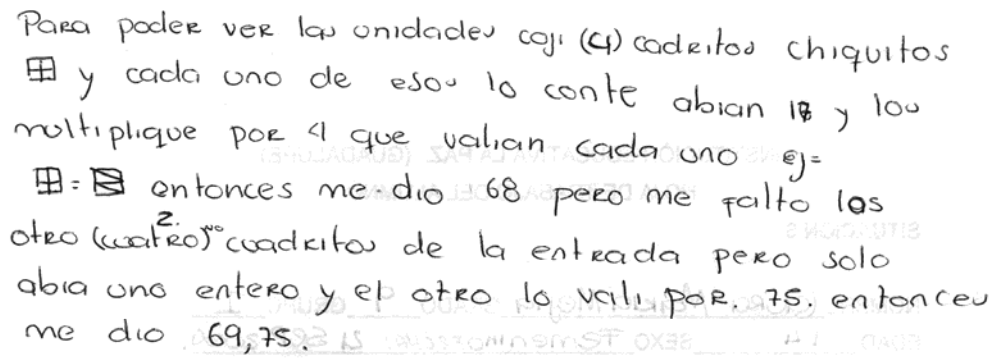 Para poder ver las unidades coji (4) cadritos chiquitos
y cada uno de esos lo conte abian 17 y los
multiplique por 4 que valian cada uno ej=
= entonces me dio 68 pero me falto los
otro (cuatro) 2. cuadritos de la entrada pero solo
abia uno entero y el otro lo vali por. 75. entonces
me dio 69,75.